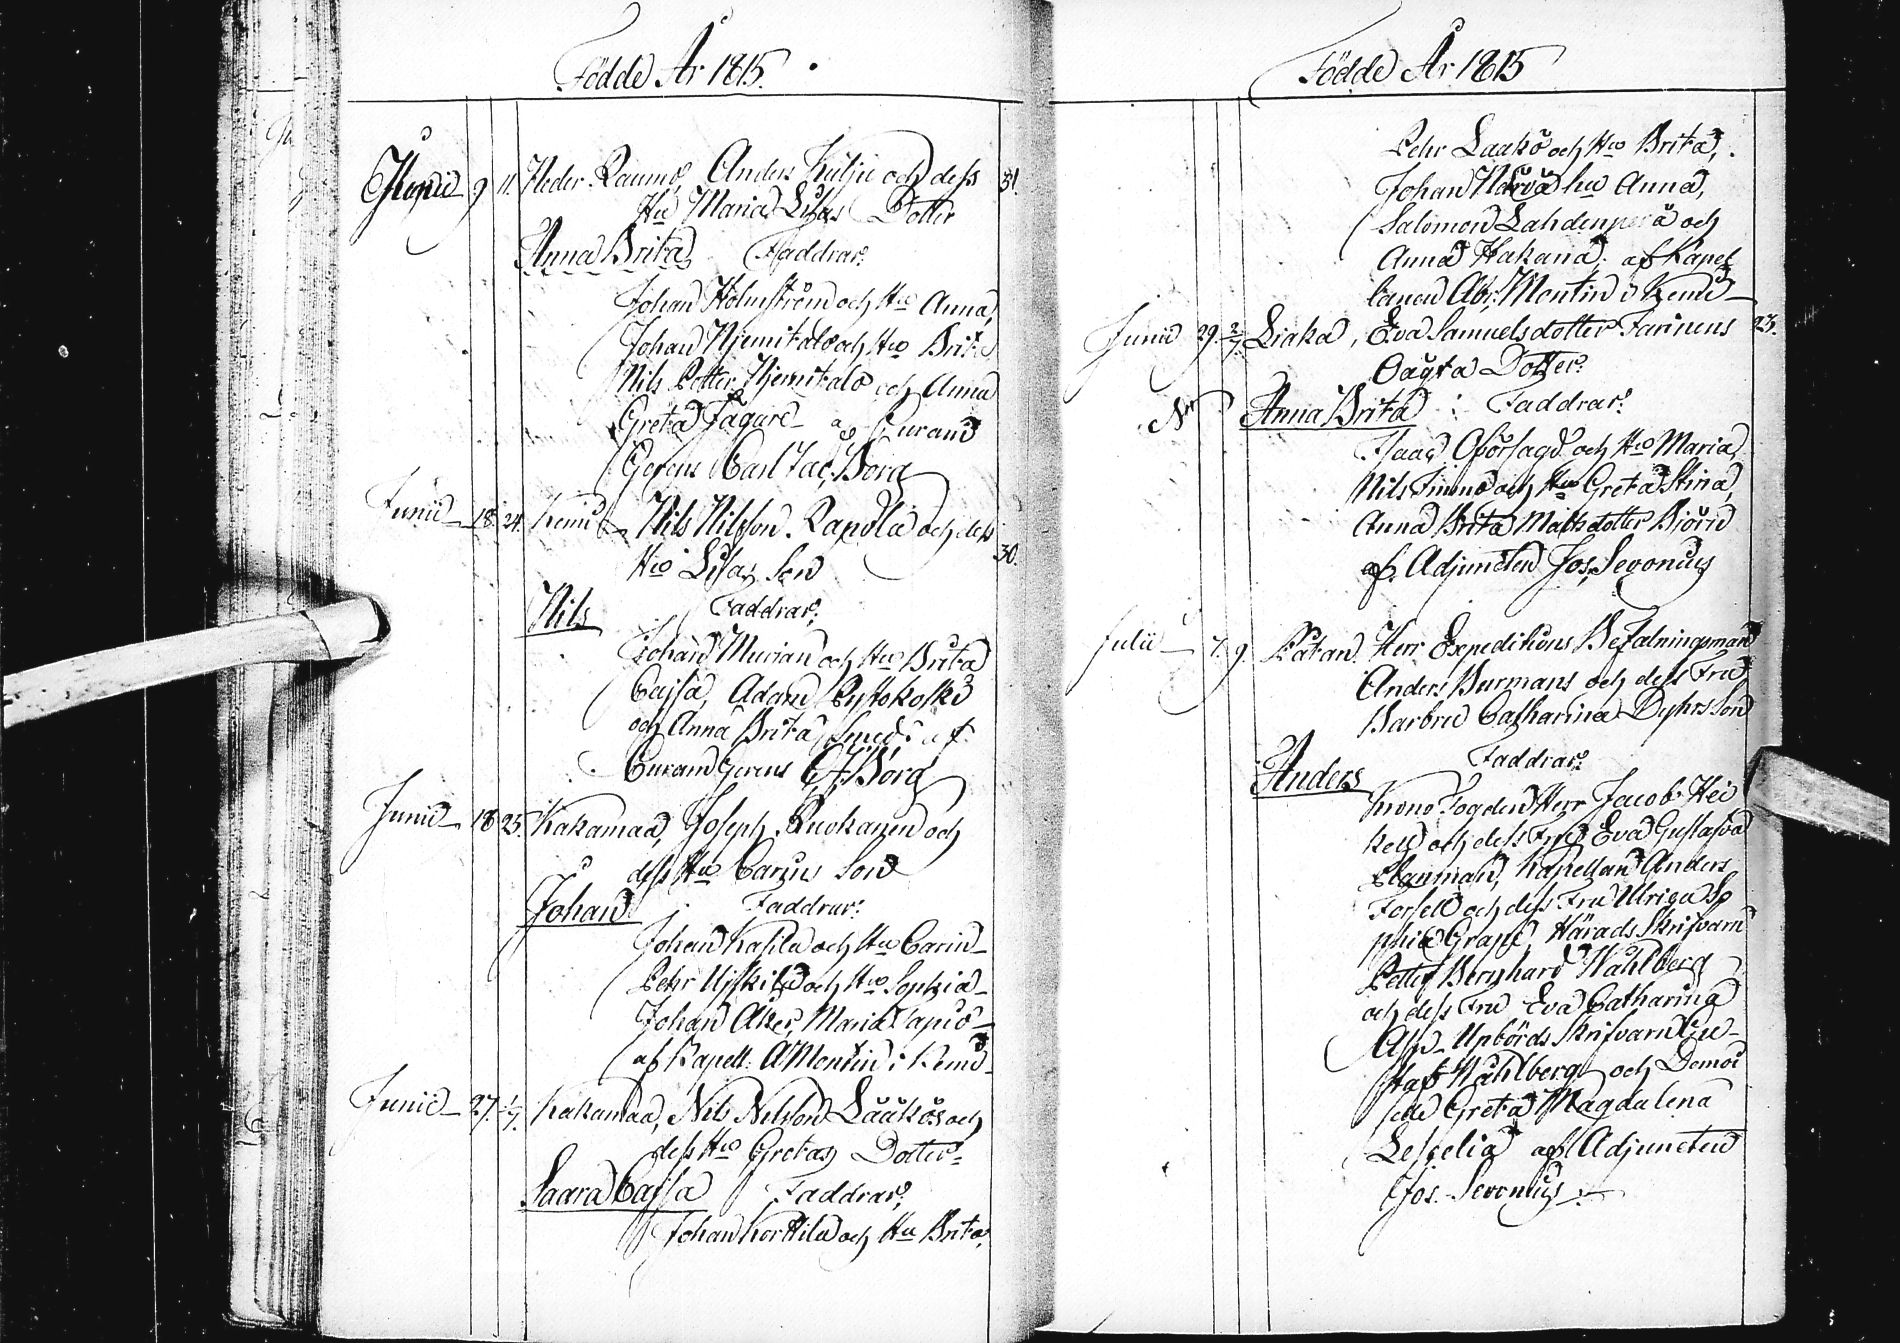 Födde År 1815.
Junii 9 11. Neder Raumo, Anders Kulju och dess 31.
Hu Maria Lisas Dotter
Anna Brita, Faddrar:
Johan Holmström och Hu Anna,
Johan Njemitalo och Hu Brita
Nils Petter Njemitalo och Anna
Greta Fagure af Curam
Gerens Carl Jac. Borg
Junii 18. 24. Kemi Nils Nilsson Rapola och dess
Hu Lisas Son 30.
Nils Faddrar:
Johan Murian och Hu Brita
Cajsa, Adam
och Anna Brita Smed: af
Curam Gerens C J Borg
Junii 18 25. Kakamaa, Joseph Ruokanen och
dess Hu Carins Son
Johan Faddrar:
Johan Kassila och Hu Carin
Pehr och Hu Sophia
Johan Aker, Maria Tapio
af Kapell. A Montin i Kemi
Junii 27. 1/7. Kakamaa, Nils Nilsson Laakos och
dess Hu Gretas Dotter
Saara Cajsa Faddrar:
Johan Korttila och Hu Brita,
Födde År 1815
Pehr Laako och Hu Brita,
Johan hu Anna,
Salomon Lahdenperä och
Anna Hakana. af Kapel
lanen Abr. Montin i Kemi
Junii 29. 2/7. Liaka, Eva Samuelsdotter Farinens 23.
Oägta Dotter:
Anna Brita : Faddrar:
Isaac och Hu Maria,
Nils Simmo och Hu Greta Stina,
Anna Brita Matsdotter Björn
af. Adjuncten Jos. Sevonius
Julii 7. 9. Pätan. Herr Expeditions Befalningsman
Anders Burmans och dess Fru
Barbru Catharina Dyhrs Son
Anders Faddrar:
Krono Fogden Herr Jacob Hei
kell och dess Fru Eva Gustafva
Elgenman, Kapellan Anders
Forsell och dess Fru Ulrica So
phia Grape, Härads Skrifvarn
Petter Bernhard Wahlberg
och dess Fru Eva Catharina
Alm Upbörds Skrifvarn Gu-
staf Wahlberg och Demoi
selle Greta Magdalena
Lestelia af Adjuncten
Jos. Sevonius